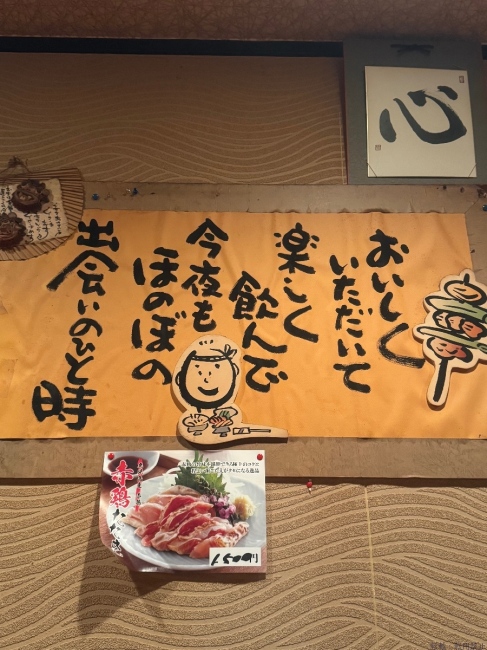 心
おいしく
いただいて
楽しく
飲んで
今夜も
ほのぼの
出会いのひと時
赤鶏たたき
1,500円